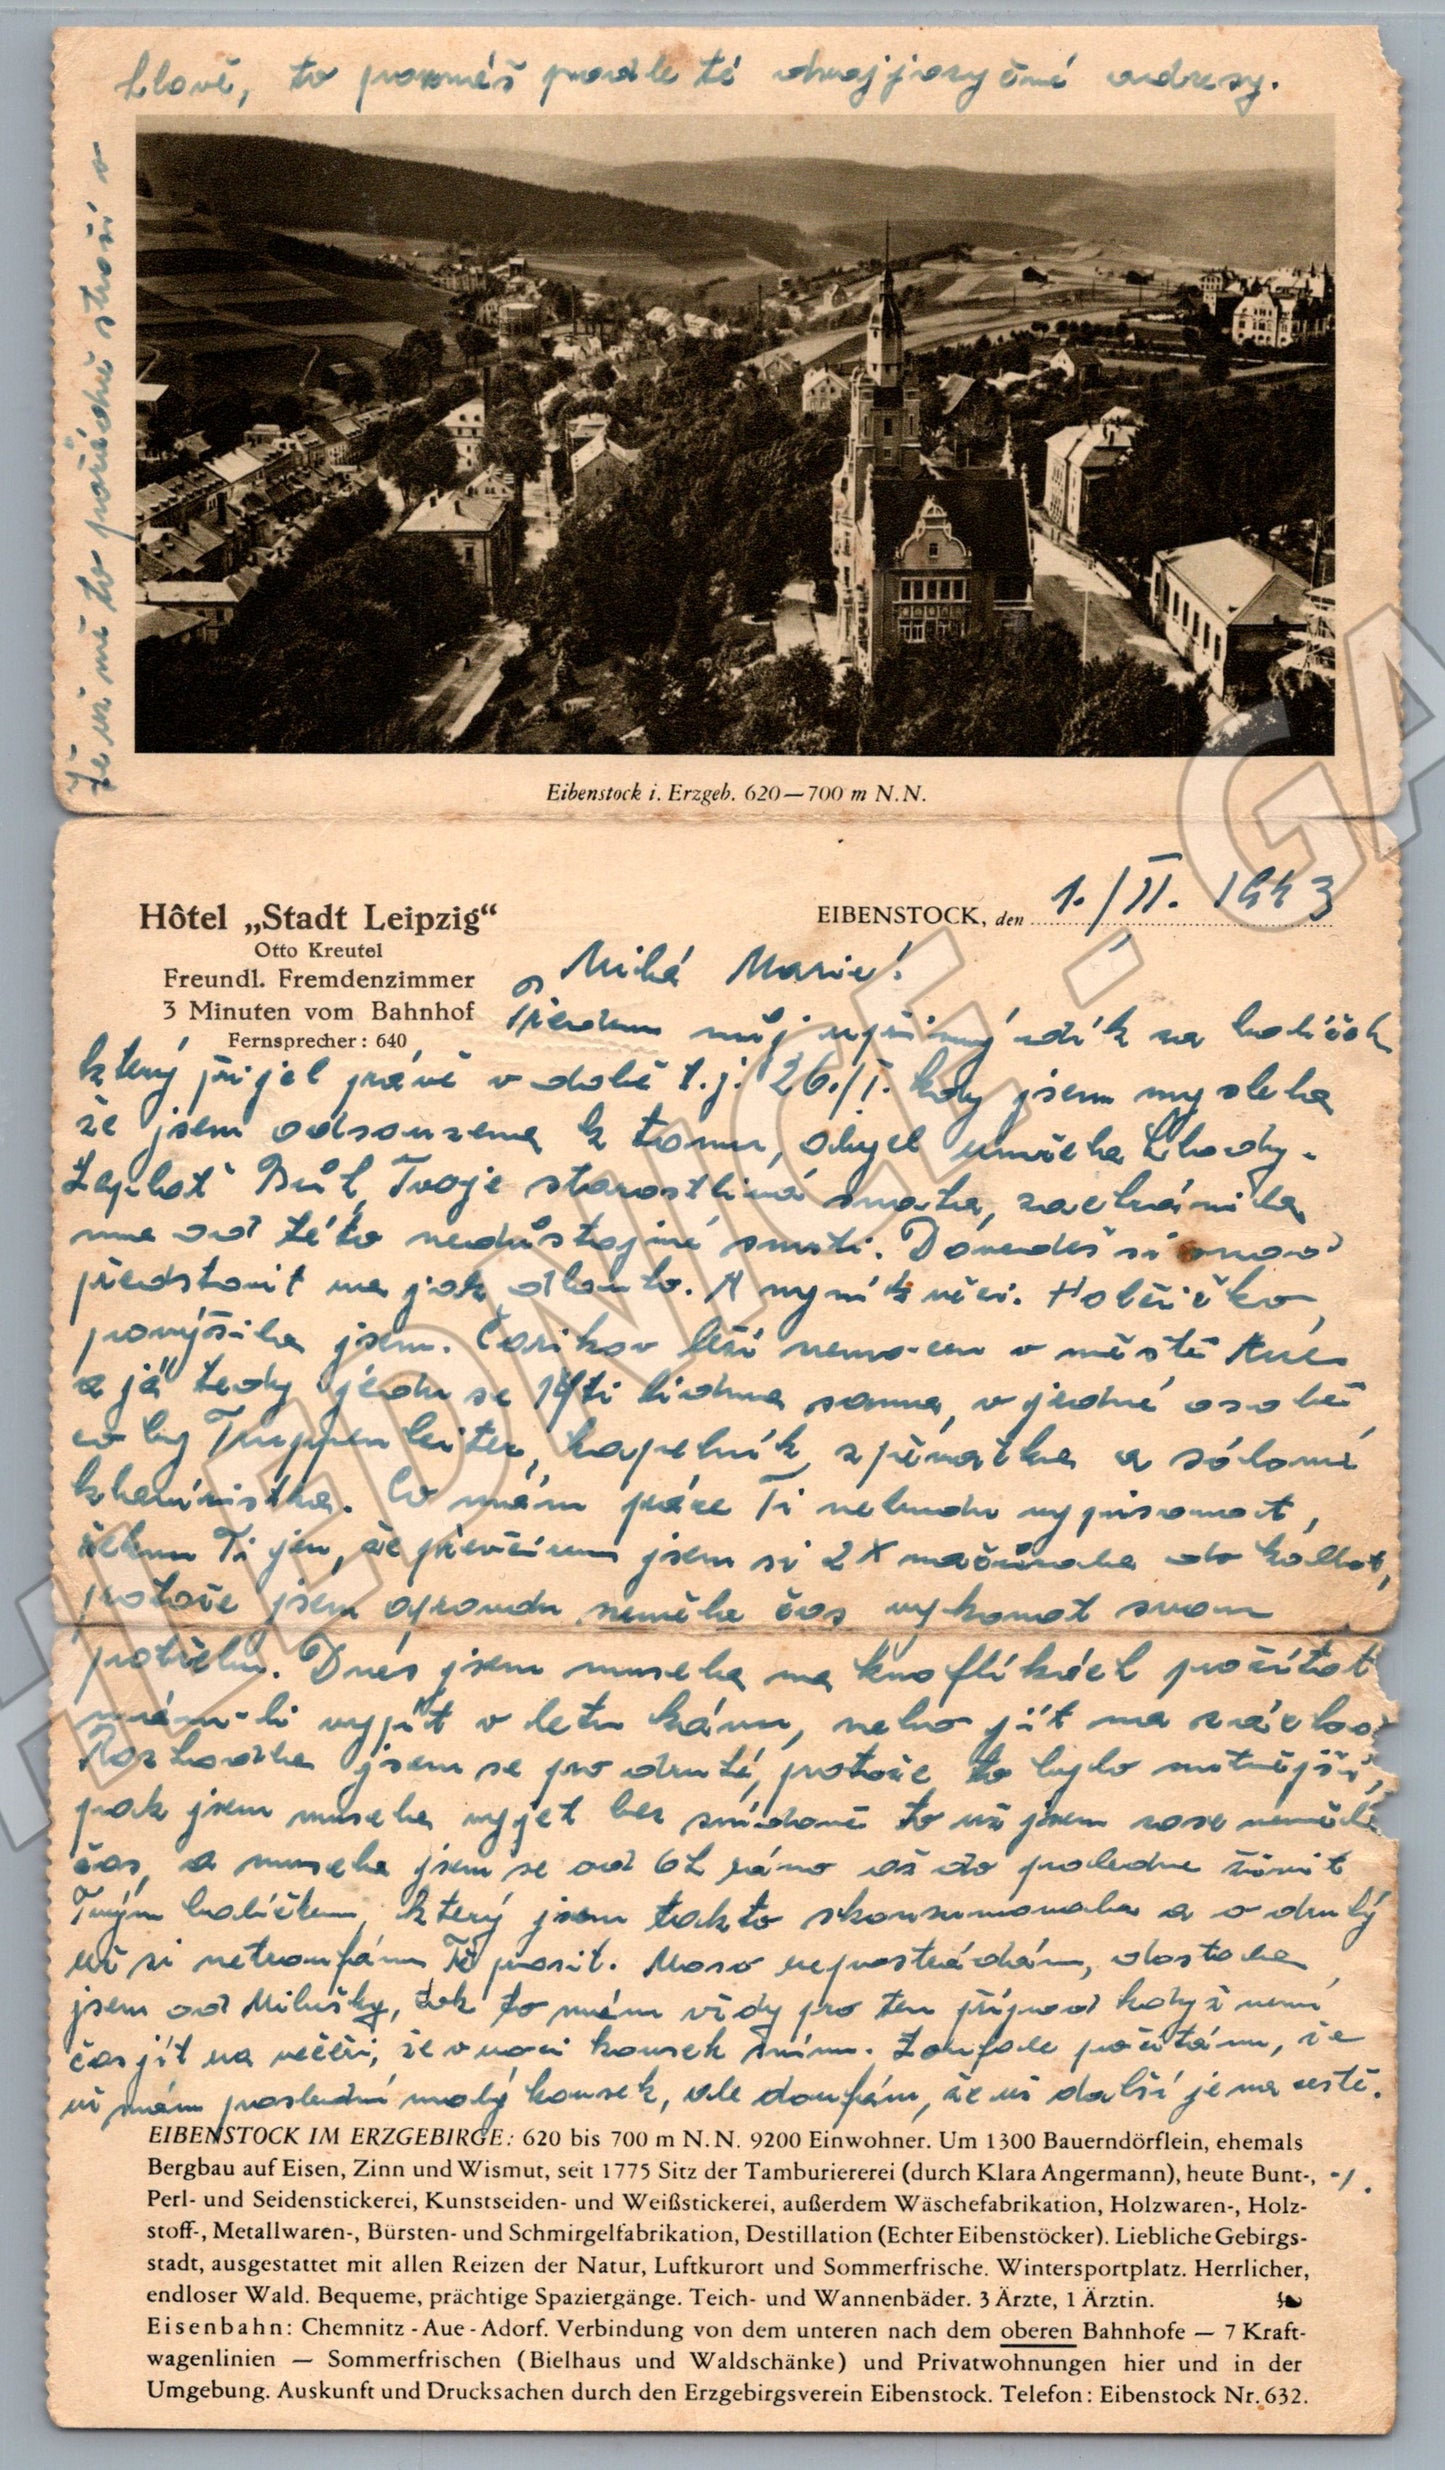 hlavě, to poznáš podle té dvojjazyčné adresy.
Že už mě to pořádně straší v
Eibenstock i. Erzgeb. 620—700 m N.N.
Hôtel „Stadt Leipzig“
Otto Kreutel
Freundl. Fremdenzimmer
3 Minuten vom Bahnhof
Fernsprecher: 640
EIBENSTOCK, den 1./II. 1943
Milá Marie!
Předem můj upřímný dík za balíček
který přijel právě v době t.j. 26./I. kdy jsem myslela
že jsem odsouzena k tomu, abych umřela hlady.
Zaplať Bůh, Tvoje starostlivá snaha, zachránila
mne od této nedůstojné smrti. Dovedeš si snad
představit na jak dlouho. A nyní k věci. Holčičko,
povýšila jsem. Čarikov leží nemocen v městě Aue
a já tedy jedu se 14ti lidma sama, v jedné osobě
co by Truppenleiter, kapelník, zpěvačka a sólomí
klavíristka. Co mám práce Ti nebudu vypisovat,
řeknu Ti jen, že předevčírem jsem si 2x načůrala do kalhot,
protože jsem opravdu neměla čas vykonat svou
potřebu. Dnes jsem musela na knoflíkách počítat
mám-li vypít v letu kávu, nebo jít na záchod
Rozhodla jsem se pro druhé, protože to bylo nutnější,
pak jsem musela vyjet bez snídaně to už jsem zase neměla
čas, a musela jsem se od 6h ráno až do poledne živit
Tvým balíčkem, který jsem takto skonsumovala a o druhý
už si netroufám Tě prosit. Maso nepostrádám, dostala
jsem od Milušky, tak to mám vždy pro ten případ když není
čas jít na večeři, že v noci kousek sním. Zoufale počítám, že
už mám poslední malý kousek, ale doufám, že už další je na cestě.
EIBENSTOCK IM ERZGEBIRGE: 620 bis 700 m N.N. 9200 Einwohner. Um 1300 Bauerndörflein, ehemals
Bergbau auf Eisen, Zinn und Wismut, seit 1775 Sitz der Tamburiererei (durch Klara Angermann), heute Bunt-, -/.
Perl- und Seidenstickerei, Kunstseiden- und Weißstickerei, außerdem Wäschefabrikation, Holzwaren-, Holz-
stoff-, Metallwaren-, Bürsten- und Schmirgelfabrikation, Destillation (Echter Eibenstöcker). Liebliche Gebirgs-
stadt, ausgestattet mit allen Reizen der Natur, Luftkurort und Sommerfrische. Wintersportplatz. Herrlicher,
endloser Wald. Bequeme, prächtige Spaziergänge. Teich- und Wannenbäder. 3 Ärzte, 1 Ärztin.
Eisenbahn: Chemnitz - Aue - Adorf. Verbindung von dem unteren nach dem oberen Bahnhofe — 7 Kraft-
wagenlinien — Sommerfrischen (Bielhaus und Waldschänke) und Privatwohnungen hier und in der
Umgebung. Auskunft und Drucksachen durch den Erzgebirgsverein Eibenstock. Telefon: Eibenstock Nr. 632.